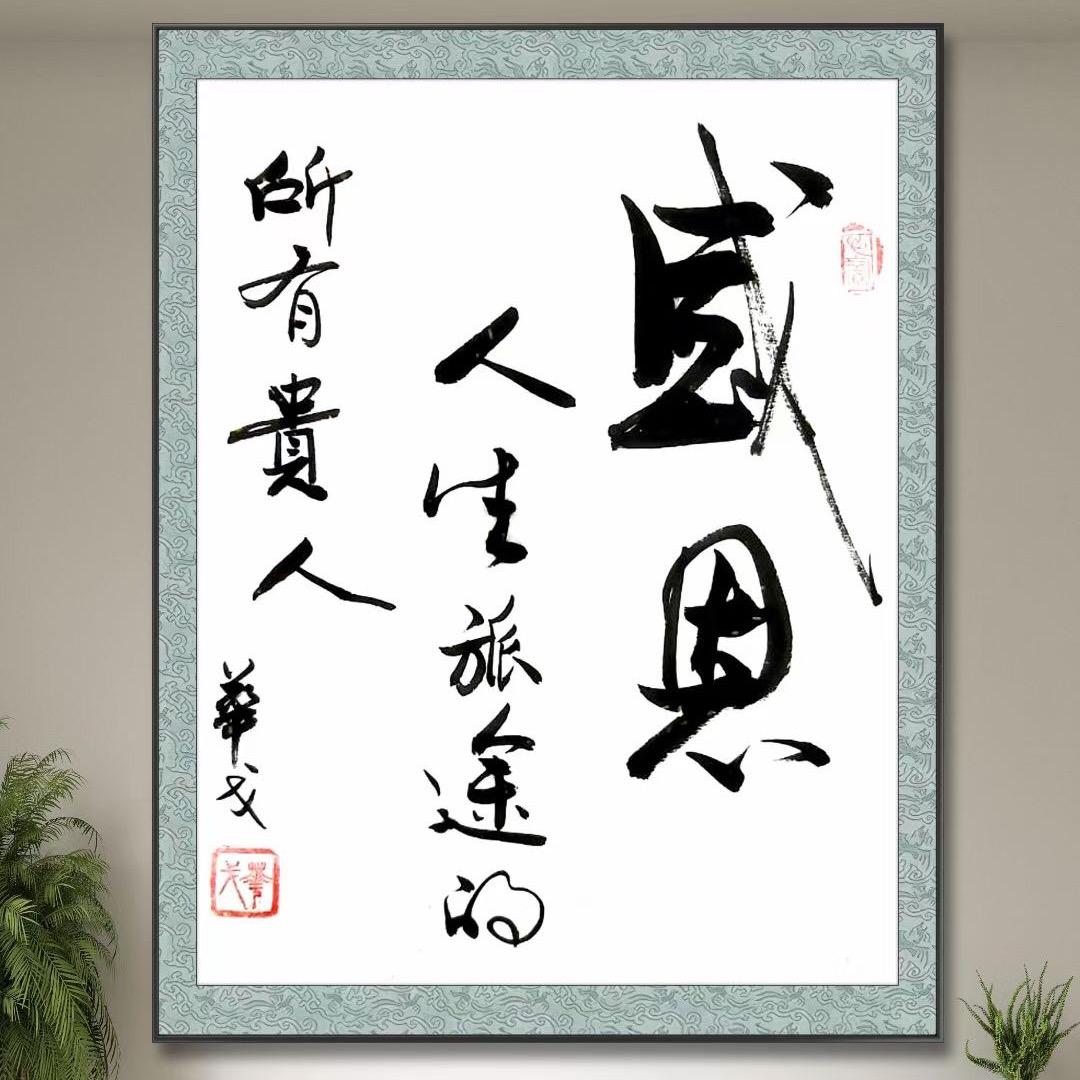 感恩
人生旅途的
所有貴人
華戈
華戈